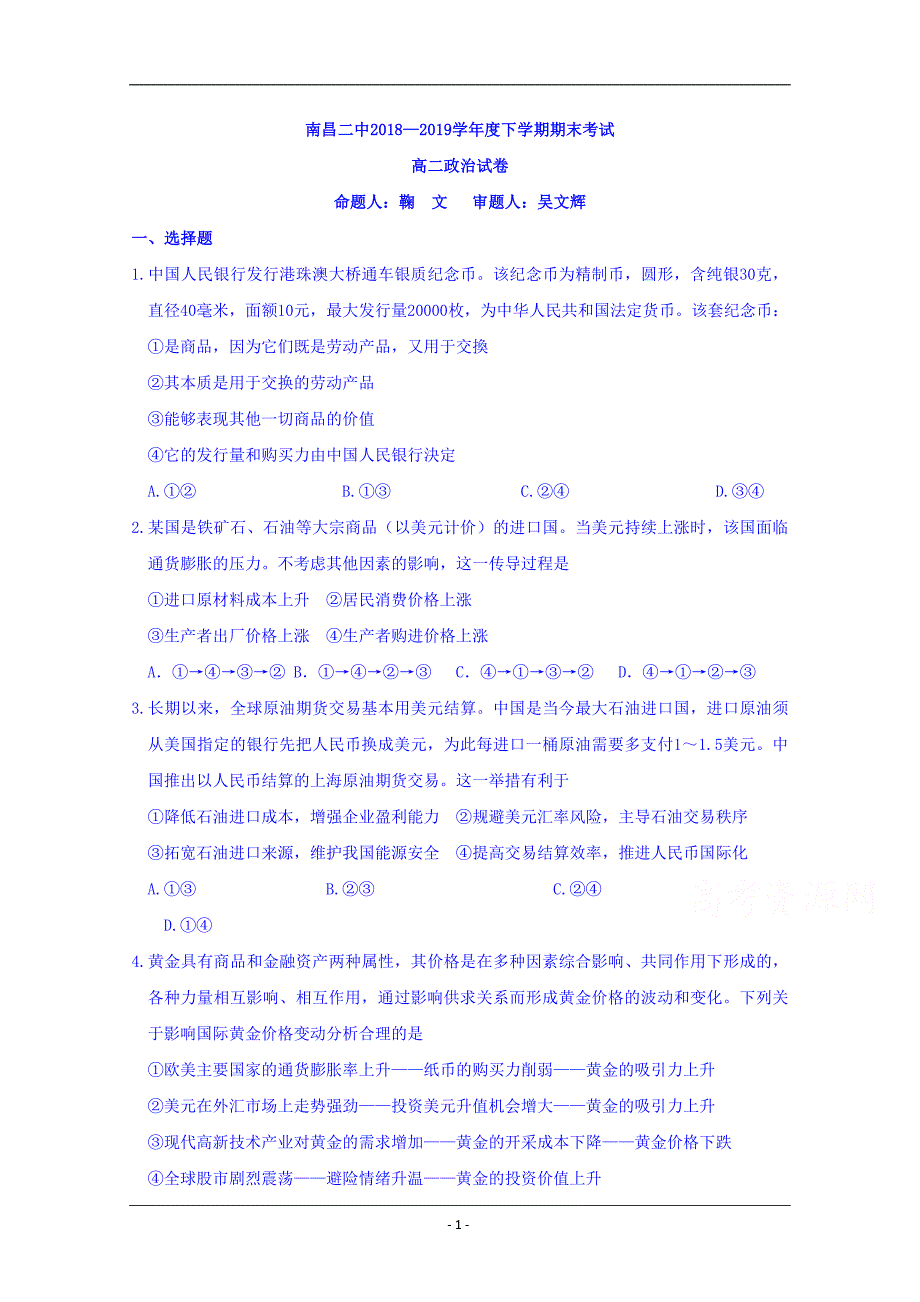 南昌二中2018—2019学年度下学期期末考试
高二政治试卷
命题人：鞠　文　审题人：吴文辉
一、选择题
1.中国人民银行发行港珠澳大桥通车银质纪念币。该纪念币为精制币，圆形，含纯银30克，
直径40毫米，面额10元，最大发行量20000枚，为中华人民共和国法定货币。该套纪念币：
①是商品，因为它们既是劳动产品，又用于交换
②其本质是用于交换的劳动产品
③能够表现其他一切商品的价值
④它的发行量和购买力由中国人民银行决定
A.①② B.①③ C.②④ D.③④
2.某国是铁矿石、石油等大宗商品（以美元计价）的进口国。当美元持续上涨时，该国面临
通货膨胀的压力。不考虑其他因素的影响，这一传导过程是
①进口原材料成本上升　②居民消费价格上涨
③生产者出厂价格上涨　④生产者购进价格上涨
A．①→④→③→② B．①→④→②→③ C．④→①→③→② D．④→①→②→③
3.长期以来，全球原油期货交易基本用美元结算。中国是当今最大石油进口国，进口原油须
从美国指定的银行先把人民币换成美元，为此每进口一桶原油需要多支付1～1.5美元。中
国推出以人民币结算的上海原油期货交易。这一举措有利于
①降低石油进口成本，增强企业盈利能力　②规避美元汇率风险，主导石油交易秩序
③拓宽石油进口来源，维护我国能源安全　④提高交易结算效率，推进人民币国际化
A.①③ B.②③ C.②④
D.①④
高考资源网
4.黄金具有商品和金融资产两种属性，其价格是在多种因素综合影响、共同作用下形成的，
各种力量相互影响、相互作用，通过影响供求关系而形成黄金价格的波动和变化。下列关
于影响国际黄金价格变动分析合理的是
①欧美主要国家的通货膨胀率上升——纸币的购买力削弱——黄金的吸引力上升
②美元在外汇市场上走势强劲——投资美元升值机会增大——黄金的吸引力上升
③现代高新技术产业对黄金的需求增加——黄金的开采成本下降——黄金价格下跌
④全球股市剧烈震荡——避险情绪升温——黄金的投资价值上升
- 1 -